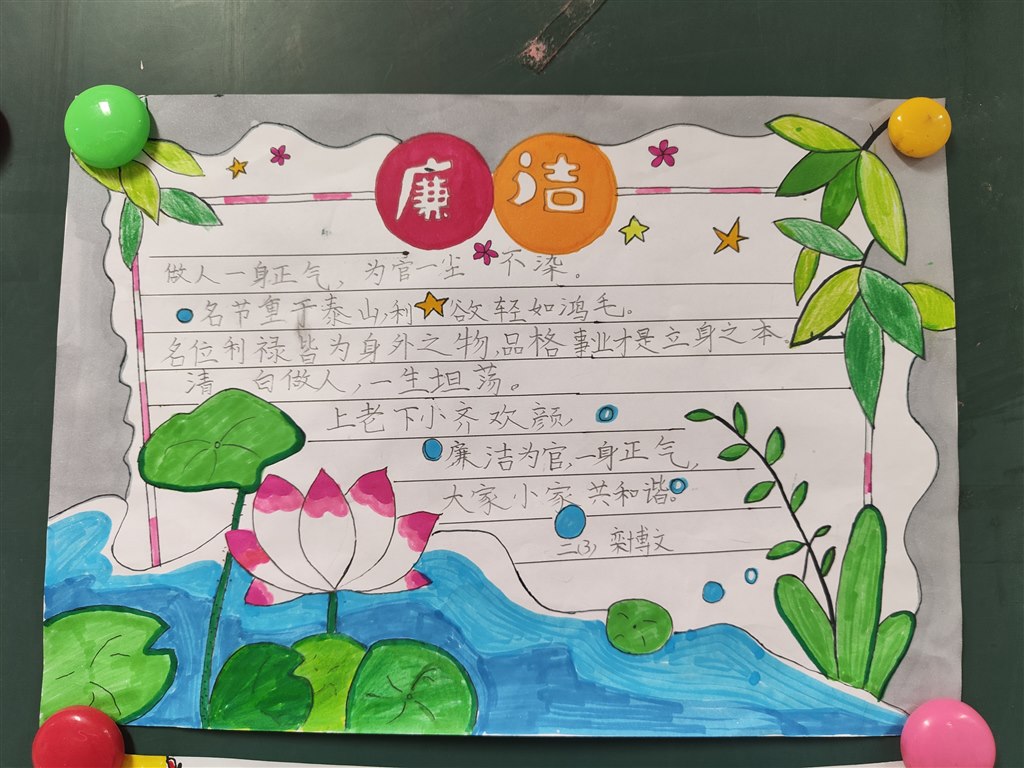 廉洁
做人一身正气，为官一尘不染。
名节重于泰山，利欲轻如鸿毛。
名位利禄皆为身外之物，品格事业才是立身之本。
清白做人，一生坦荡。
上老下小齐欢颜，
廉洁为官，一身正气，
大家小家共和谐。
二（3） 栾博文